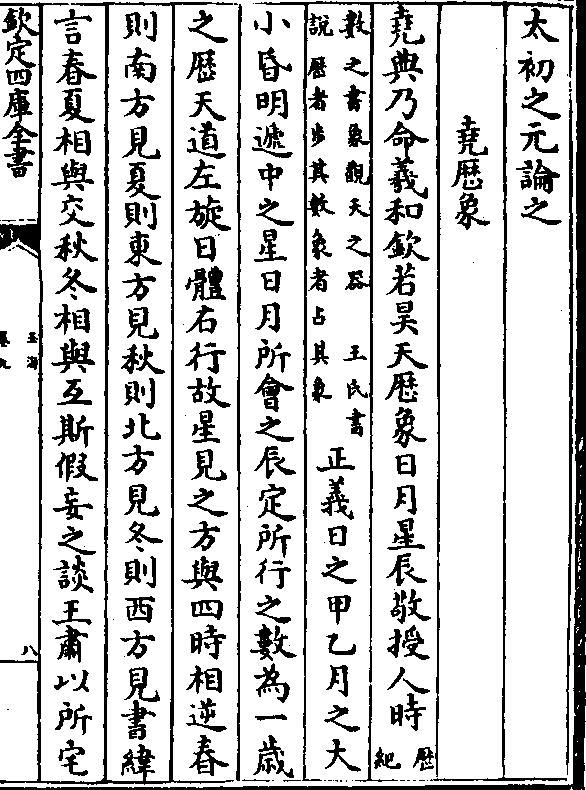 太初之元論之
堯厯象
堯典乃命羲和欽若昊天厯象日月星辰敬授人時厯紀
數之書象觀天之器 王氏書
說厯者步其數象者占其象
正義日之甲乙月之大
小昏明遞中之星日月所會之辰定所行之數為一歲
之厯天道左旋日體右行故星見之方與四時相逆春
則南方見夏則東方見秋則北方見冬則西方見書緯
言春夏相與交秋冬相與互斯假妄之談王肅以所宅
欽定四庫全書
玉海
卷九
八